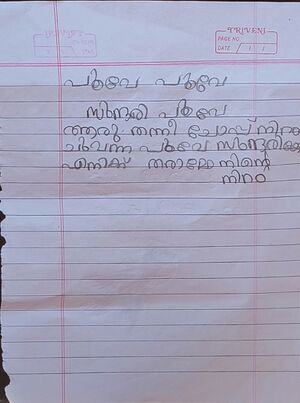 TRIVENI
PAGE NO.
DATE / /
പൂവേ പൂവേ
സുന്ദരി പൂവേ
ആരു തന്നീ ചോപ്പ് നിറം
ചുവന്ന പൂവേ സുന്ദരിക്കു
എനിക്ക് തരാമോ നിന്റെ
നിറം